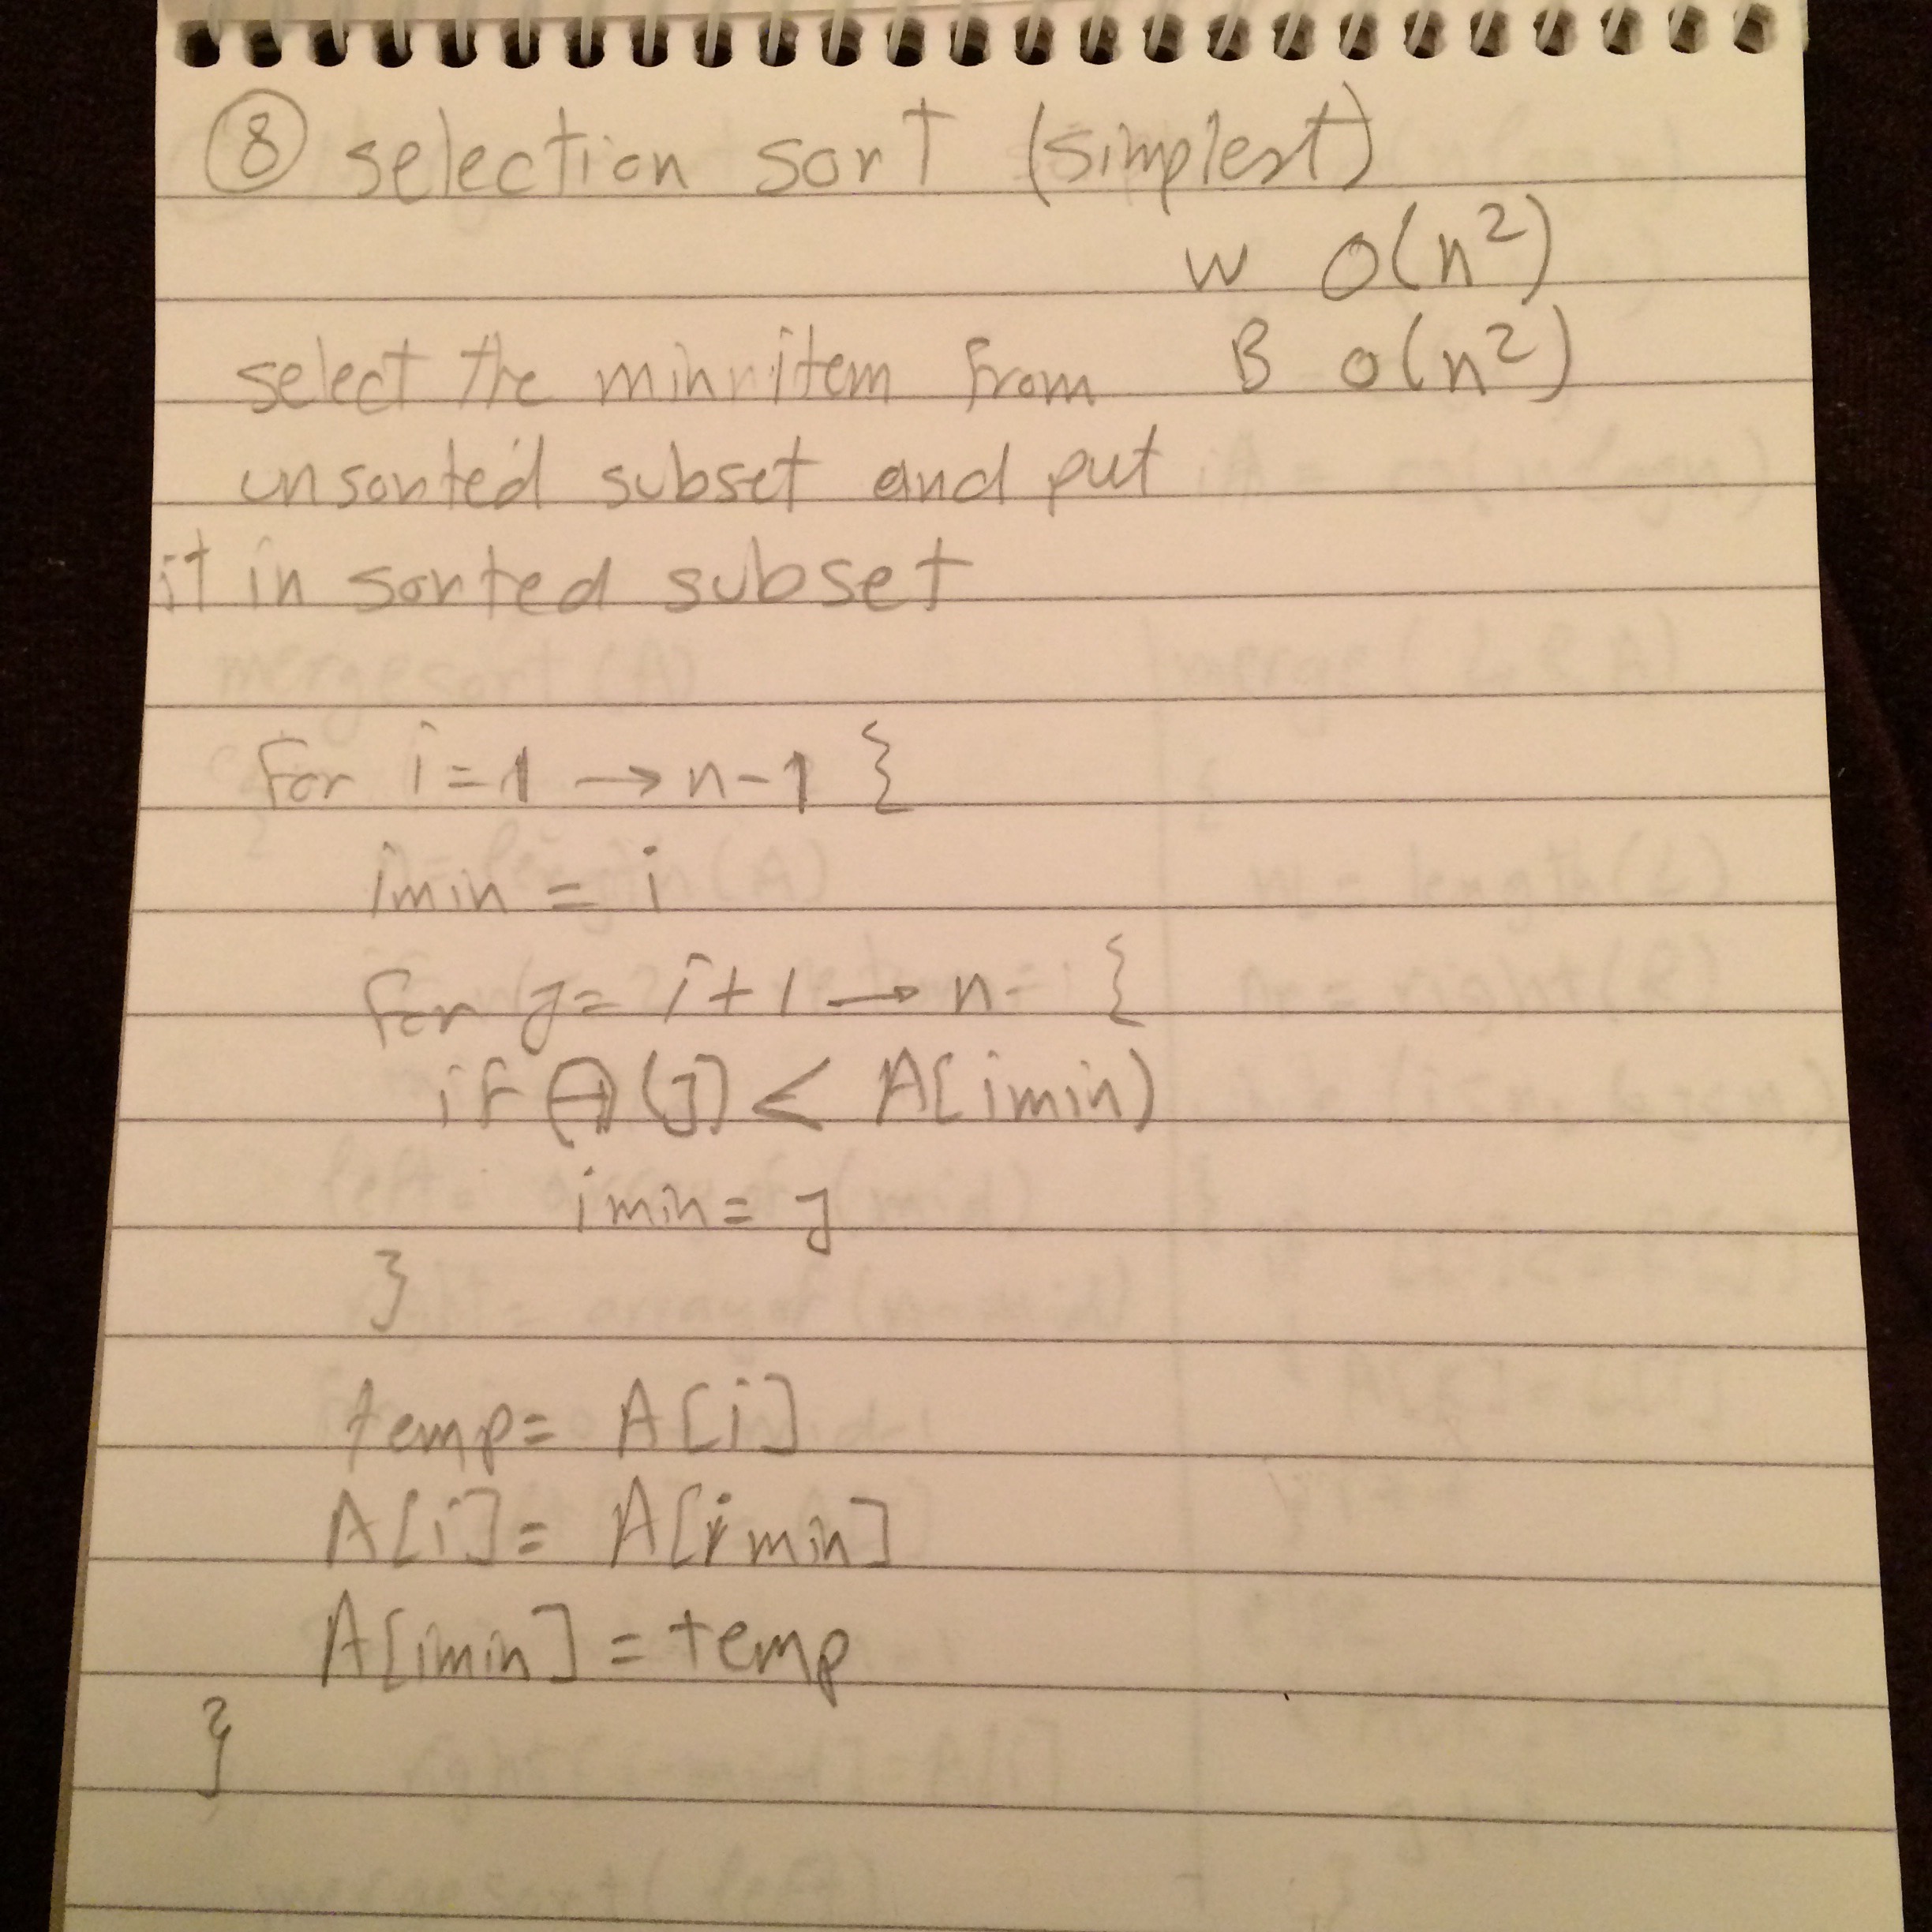 ⑧ selection sort (simplest)
W O(n²)
B O(n²)
select the min item from
unsorted subset and put
it in sorted subset
for i=1 → n-1 {
imin = i
for j= i+1 → n- {
if A[j] < A[imin)
imin = j
}
temp= A[i]
A[i]= A[imin]
A[imin] = temp
}